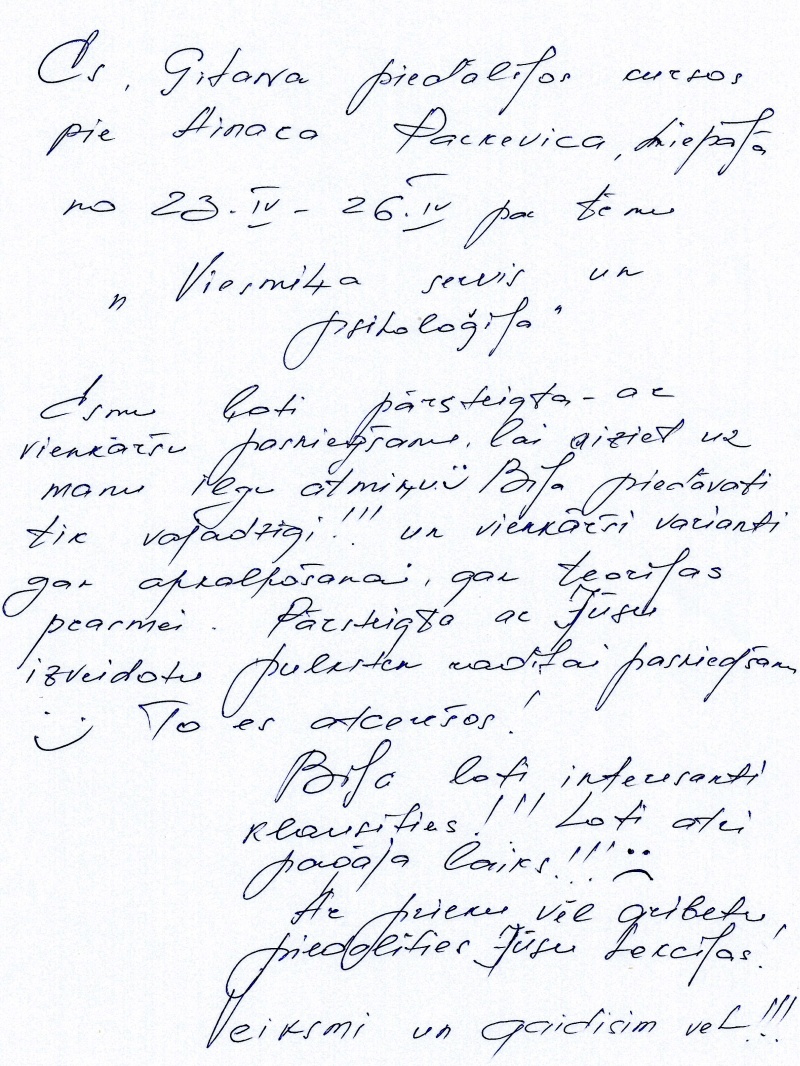 Es, Gitana piedalījos cursos
pie Ainara Packevica, Liepājā
no 23.IV - 26.IV par tēmu
„ Viesmīļa serviss un
psiholoģija“
Esmu ļoti pārsteigta - ar
vienkāršu pasniegšanu, lai aiziet uz
manu ilgu atmiņu ü Bija piedāvati
tik vajadzīgi!!! un vienkārši varianti
gan apkalpošanai, gan teorijas
pearmei. Pārsteigta ar Jūsu
izveidotu pulksten radītai pasniedšanu
:) To es atcerēšos!
Bija ļoti interesanti
klausīties!!! Ļoti atri
pagāja laiks!!! :(
Ar prieku vēl gribetu,
piedalīties Jūsu Lekcijas!
Veiksmi un gaidisim vēl!!!